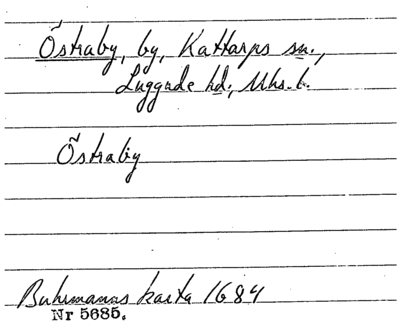 Östraby, by, Kattarps sn.,
Luggude hd., Mhs. l.
Östraby
Buhrmanns karta 1684
Nr 5685.